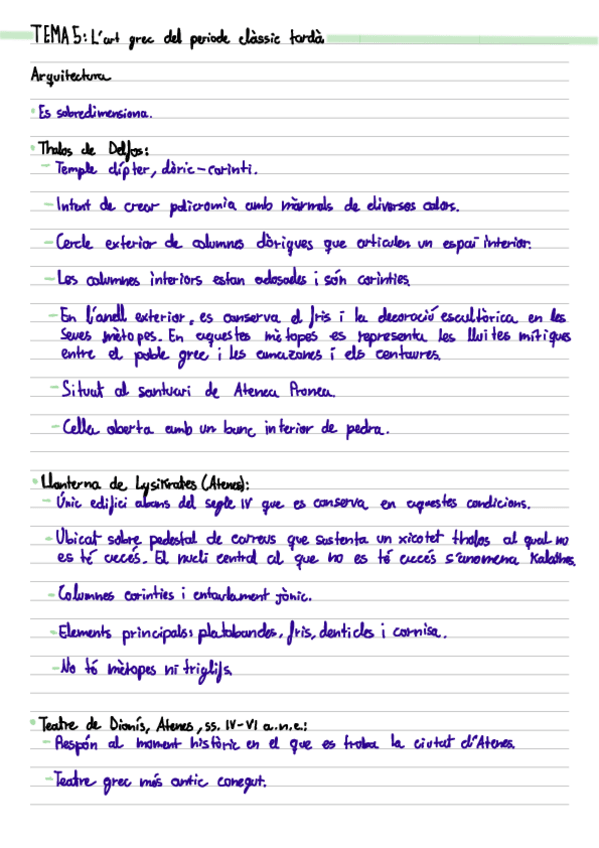 TEMA 5: L'art grec del període clàssic tardà
Arquitectura
• Es sobredimensiona.
• Tholos de Delfos:
- Temple dípter, dòric-corinti.
- Intent de crear policromia amb màrmols de diversos colors.
- Cercle exterior de columnes dòriques que articulen un espai interior.
- Les columnes interiors estan adosades i són corínties.
- En l'anell exterior, es conserva el fris i la decoració escultòrica en les
seves mètopes. En aquestes mètopes es representa les lluites mítiques
entre el poble grec i les amazones i els centaures.
- Situat al santuari de Atenea Pronea.
- Cella oberta amb un banc interior de pedra.
• Llanterna de Lysikrates (Atenes):
- Únic edifici abans del segle IV que es conserva en aquestes condicions.
- Ubicat sobre pedestal de carreus que sustenta un xicotet tholos al qual no
es té accés. El nucli central al que no es té accés s'anomena Kalathos.
- Columnes corinties i entaulament jònic.
- Elements principals: platabandes, fris, denticles i cornisa.
- No té mètopes ni triglifs.
• Teatre de Dionís, Atenes, ss. IV-VI a.n.e.:
- Respón al moment històric en el que es troba la ciutat d'Atenes.
- Teatre grec més antic conegut.